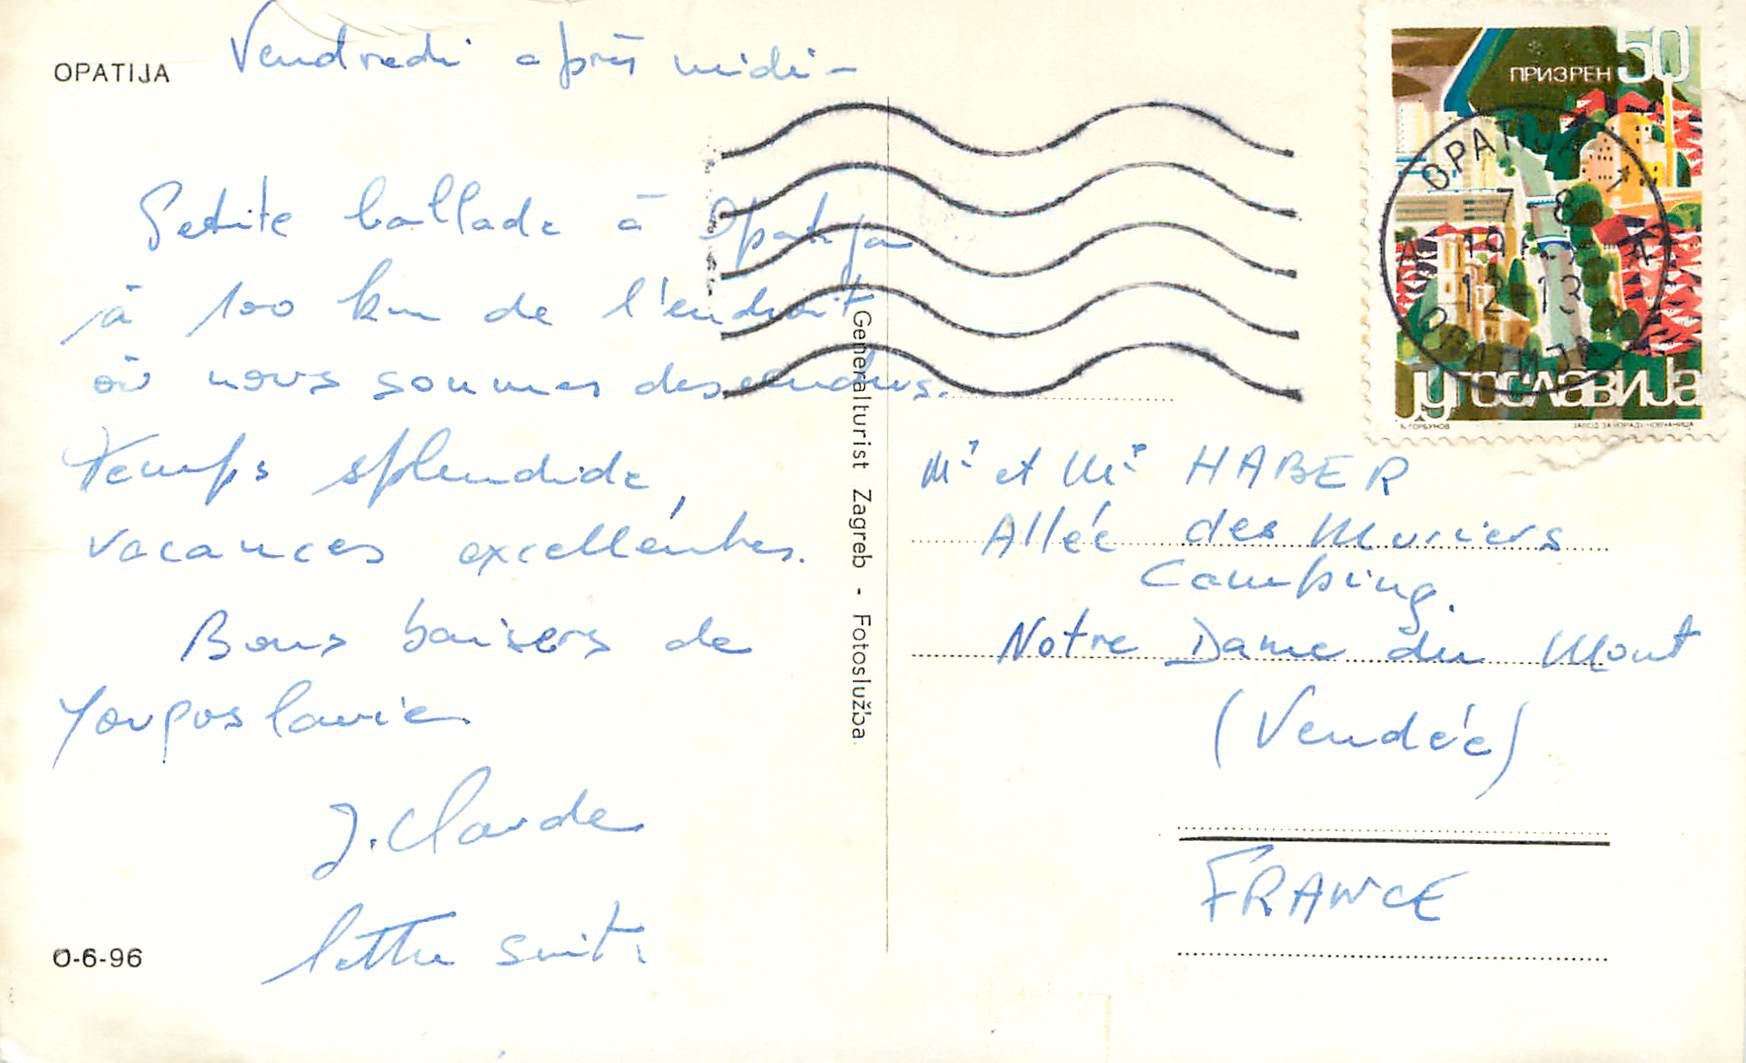 OPATIJA
Vendredi après midi -
Petite ballade à Opatija
à 100 km de l'endroit
où nous sommes descendus.
Temps splendide,
vacances excellentes.
Bons baisers de
Yougoslavie
J. Claude
lettre suit.
O-6-96
Generalturist Zagreb - Fotoslužba
ПРИЗРЕН 50
OPATIJA 1
7-8
12-13
ОПАТИЈА
Југославија
Mr et Me HABER
Allée des Muriers
Camping.
Notre Dame du Mont
(Vendée)
FRANCE